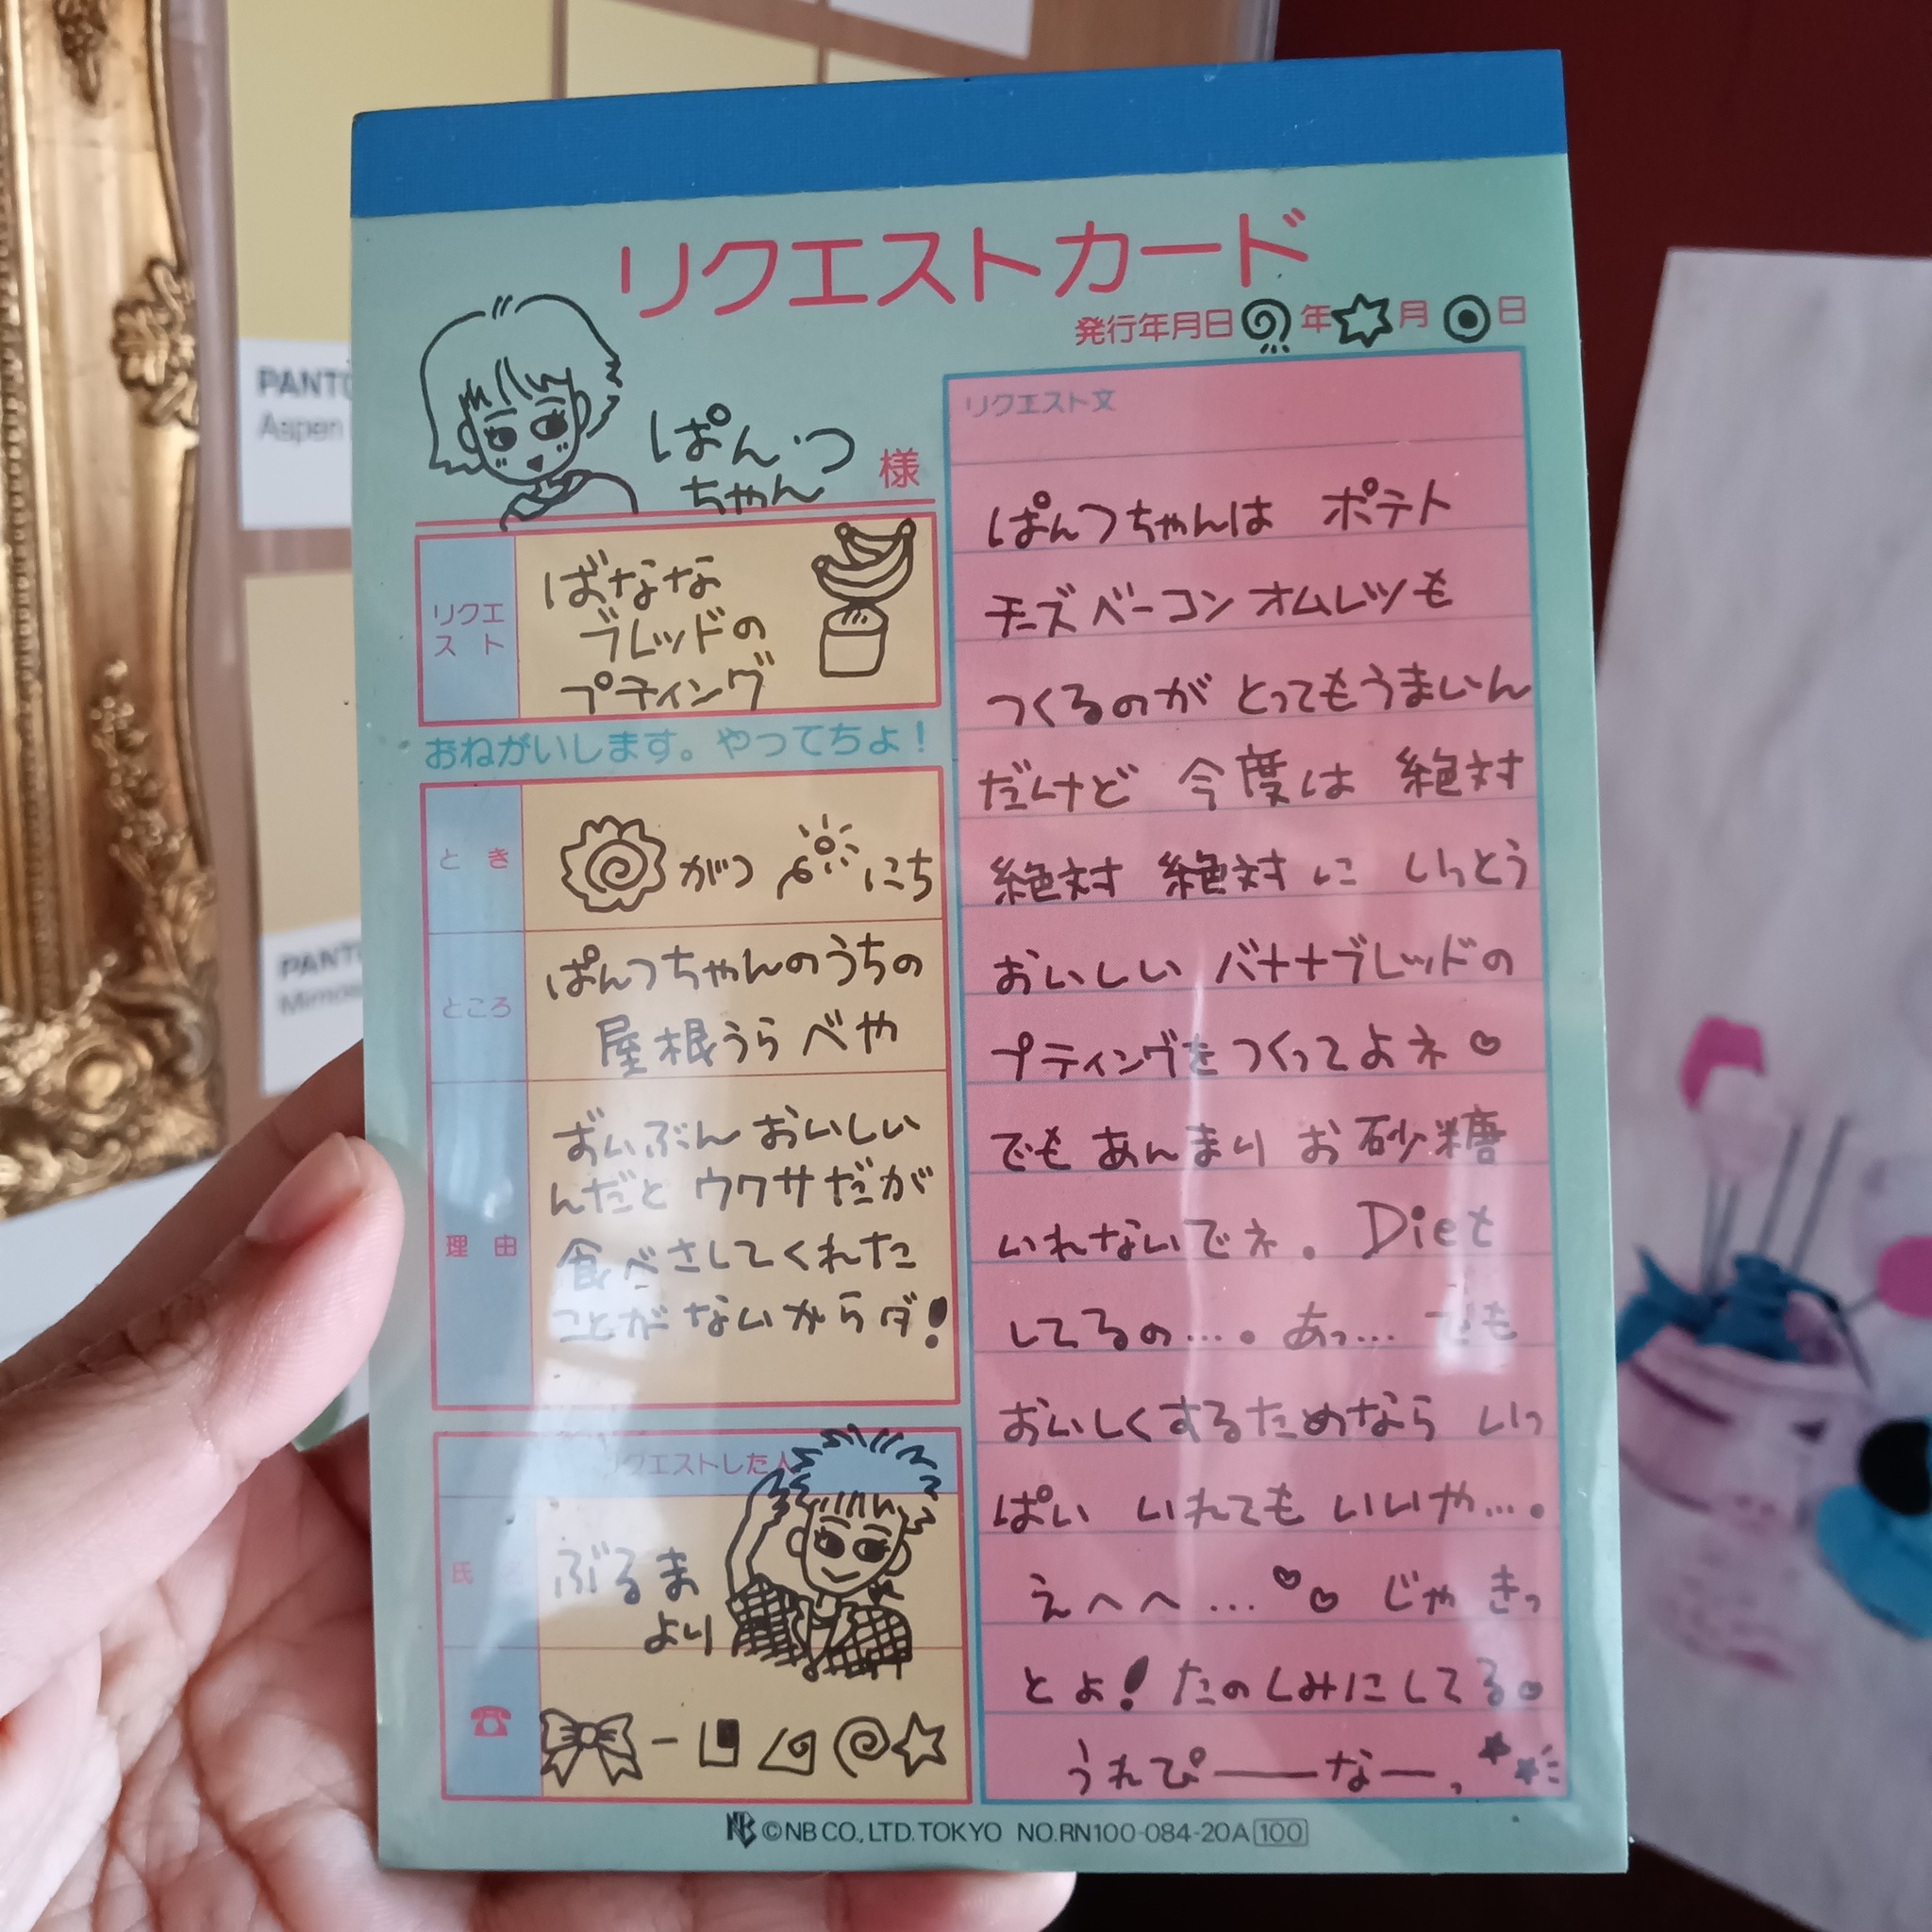 PANTO
Aspen
PANT
Mimos
リクエストカード
発行年月日 年 月 日
ぱんつ
ちゃん 様
リクエ
スト
ばなな
ブレッドの
プティング
おねがいします。やってちょ!
とき
がつ にち
ところ
ぱんつちゃんのうちの
屋根うらべや
理由
ずいぶん おいしい
んだと ウワサだが
食べさしてくれた
ことが ないからダ!
クエストした人
氏
ぶるま
より
☎ - 
リクエスト文
ぱんつちゃんは ポテト
チーズベーコンオムレツも
つくるのが とってもうまいん
だけど 今度は 絶対
絶対 絶対に いっとう
おいしい バナナブレッドの
プティングをつくってよネ♡
でも あんまり お砂糖
いれないでネ。Diet
してるの…。あっ… でも
おいしくするためなら いっ
ぱい いれても いいや…。
えへへ…♡♡ じゃ きっ
とよ! たのしみにしてる。
うれぴ——な—、
NB ©NB CO., LTD. TOKYO NO.RN100-084-20A 100